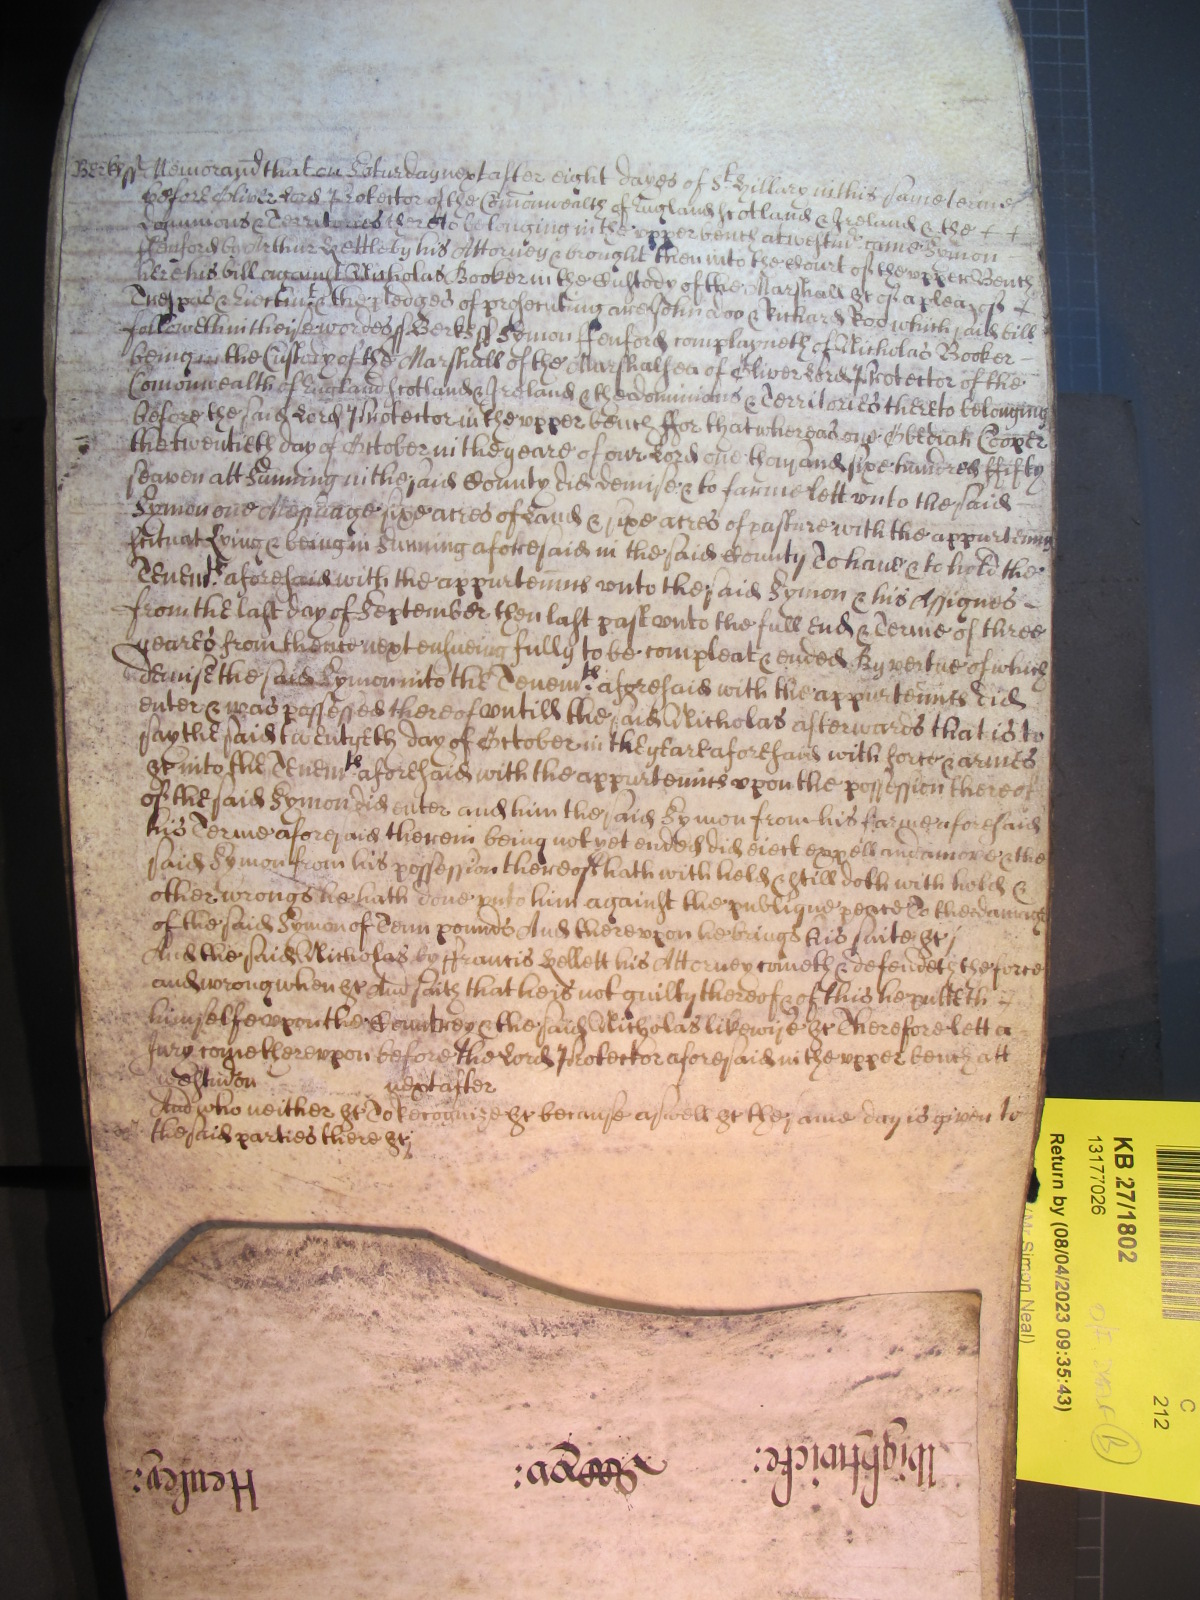 Berks ss Memorand that on Saturday next after eight dayes of St Hillary in this same terme
before Oliver Lord Protector of the Comonwealth of England Scotland & Ireland & the
dominions & Territories thereto belonging in the upper bench at westmr came Symon
ffenford by Arthur his Attorney & brought then into the Court of the upper Bench
here his bill against Nicholas Booker in the Custody of the Marshall &c of a plea of
Trespas & Eiectmt & the pledges of prosecuting are John doo & Richard Roo which said bill
followeth in theise wordes ss Berks ss Symon ffenford complayneth of Nicholas Booker
being in the Custody of the Marshall of the Marshalsea of Oliver Lord Protector of the
Comonwealth of England Scotland & Ireland & the dominions & Territories thereto belonging
before the said Lord Protector in the upper bench ffor that whereas one Obediah Cooper
the twentieth day of October in the yeare of our Lord one thousand sixe hundred ffifty
seaven att Sunning in the said County did demise & to farme lett unto the said
Symon one Messuage sixe acres of Land & sixe acres of pasture with the appurtennts
scituat Lying & being in Sunning aforesaid in the said County To have & to hold the
Tenemts aforesaid with the appurtennts unto the said Symon & his Assignes
from the last day of September then last past unto the full end & Terme of three
yeares from thence next ensueing fully to be compleat & ended By vertue of which
demise the said Symon into the Tenemts aforesaid with the appurtennts did
enter & was possessed thereof untill the said Nicholas afterwards that is to
say the said twentyeth day of October in the yeare aforesaid with force & armes
&c into the Tenemts aforesaid with the appurtennts upon the possession thereof
of the said Symon did enter and him the said Symon from his farme aforesaid
his Terme aforesaid therein being not yet ended did eiect expell and amove & the
said Symon from his possession thereof hath with held & still doth with hold &
other wrongs he hath done unto him against the publique peace To the damage
of the said Symon of Tenn pounds And thereupon he brings his suite &c
And the said Nicholas by ffrancis Hellett his Attorney cometh & defendeth the force
and wrong when &c And saith that he is not guilty thereof & of this he putteth
himselfe upon the Countrey & the said Nicholas likewise &c Therefore lett a
Jury come thereupon before the Lord Protector aforesaid in the upper bench att
westmr on next after
And who neither &c To Recognize &c because aswell &c the same day is given to
the said parties there &c
Wightwicke:
Henley:
KB 27/1802
13177026
Return by (08/04/2023 09:35:43)
(Mr Simon Neal)
C
212
B